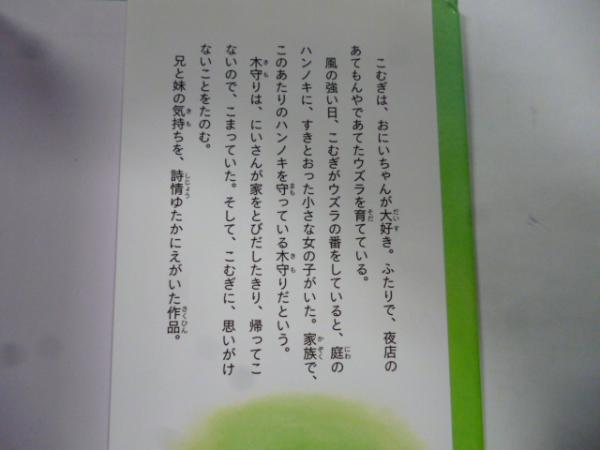 こむぎは、おにいちゃんが大好き。ふたりで、夜店の
あてもんやであてたウズラを育てている。
風の強い日、こむぎがウズラの番をしていると、庭の
ハンノキに、すきとおった小さな女の子がいた。家族で、
このあたりのハンノキを守っている木守りだという。
木守りは、にいさんが家をとびだしたきり、帰ってこ
ないので、こまっていた。そして、こむぎに、思いがけ
ないことをたのむ。
兄と妹の気持ちを、詩情ゆたかにえがいた作品。